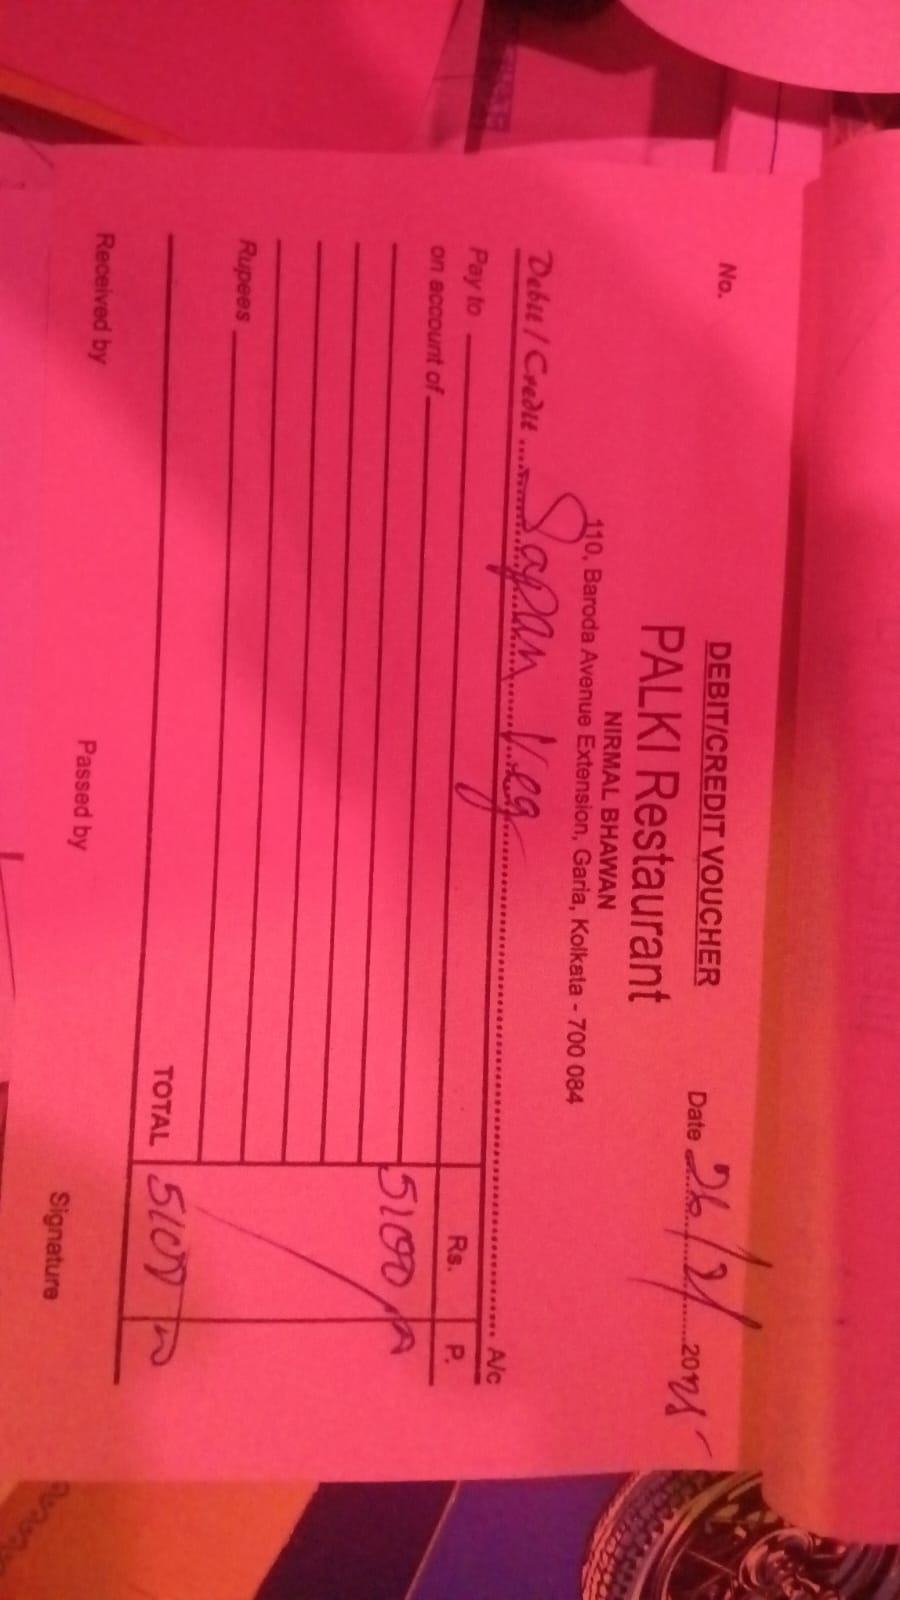 DEBIT/CREDIT VOUCHER
No.
PALKI Restaurant
NIRMAL BHAWAN
110, Baroda Avenue Extension, Garia, Kolkata - 700 084
Date 26/
Debit / Credit Sapan Veg A/c
Pay to Rs. P.
on account of 5100
Rupees
TOTAL 5100
Received by Passed by Signature